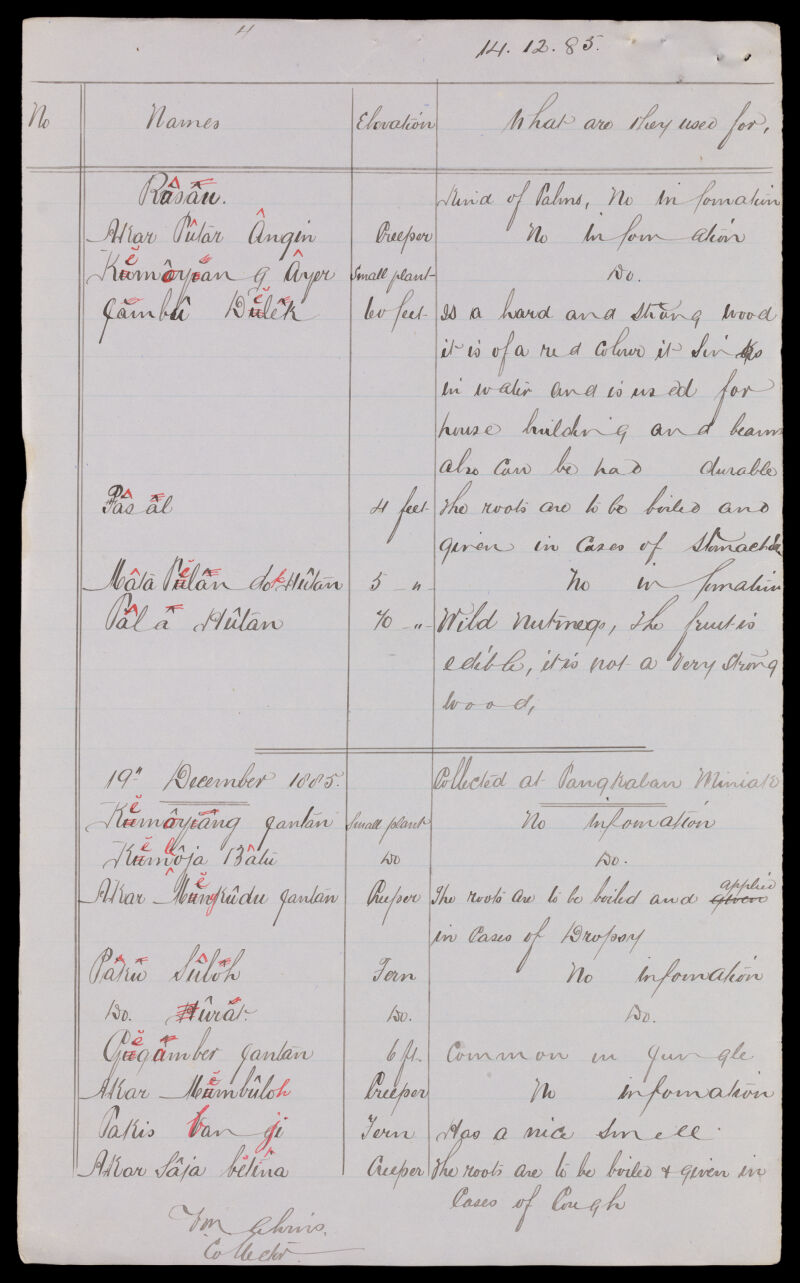 4
14. 12. 85.
No Names Elevation What are they used for,
Râsâu. Kind of Palms, No information
Akar Pûtār Ângin Creeper No information
Kĕmōyan Âyer Small plant Do.
Jâmbû Bĕlêk 60 feet Is a hard and strong wood
it is of a red colour it sinks
in water and is used for
house building and beams
also can be had durable
Pâsâl 4 feet The roots are to be boiled and
given in cases of stomach
Mâtā Pĕlân dok Hûtān 5 -"- No infomation
Pâlâ Hûtān 70 -"- Wild Nutmegs, the fruit is
edible, it is not a very strong
wood,
19" December 1885. Collected at Pangkalan Miniak
Kĕmoyang Jantān Small plant No infomation
Kĕmbôja Bâtū Do Do.
Akar Mĕngkûdu Jantān Creeper The roots are to be boiled and given applied
in Cases of Dropsy
Pâkū Sûlôh Fern No infomation
Do. Hûrât. Do. Do.
Gĕgâmber Jantān 6 ft. Common in jungle
Akar Mĕmbûloh Creeper No infomation
Pakis Wangi Fern Has a nice smell.
Akar Sâja bĕtina Creeper The roots are to be boiled & given in
Cases of Cough
Collector